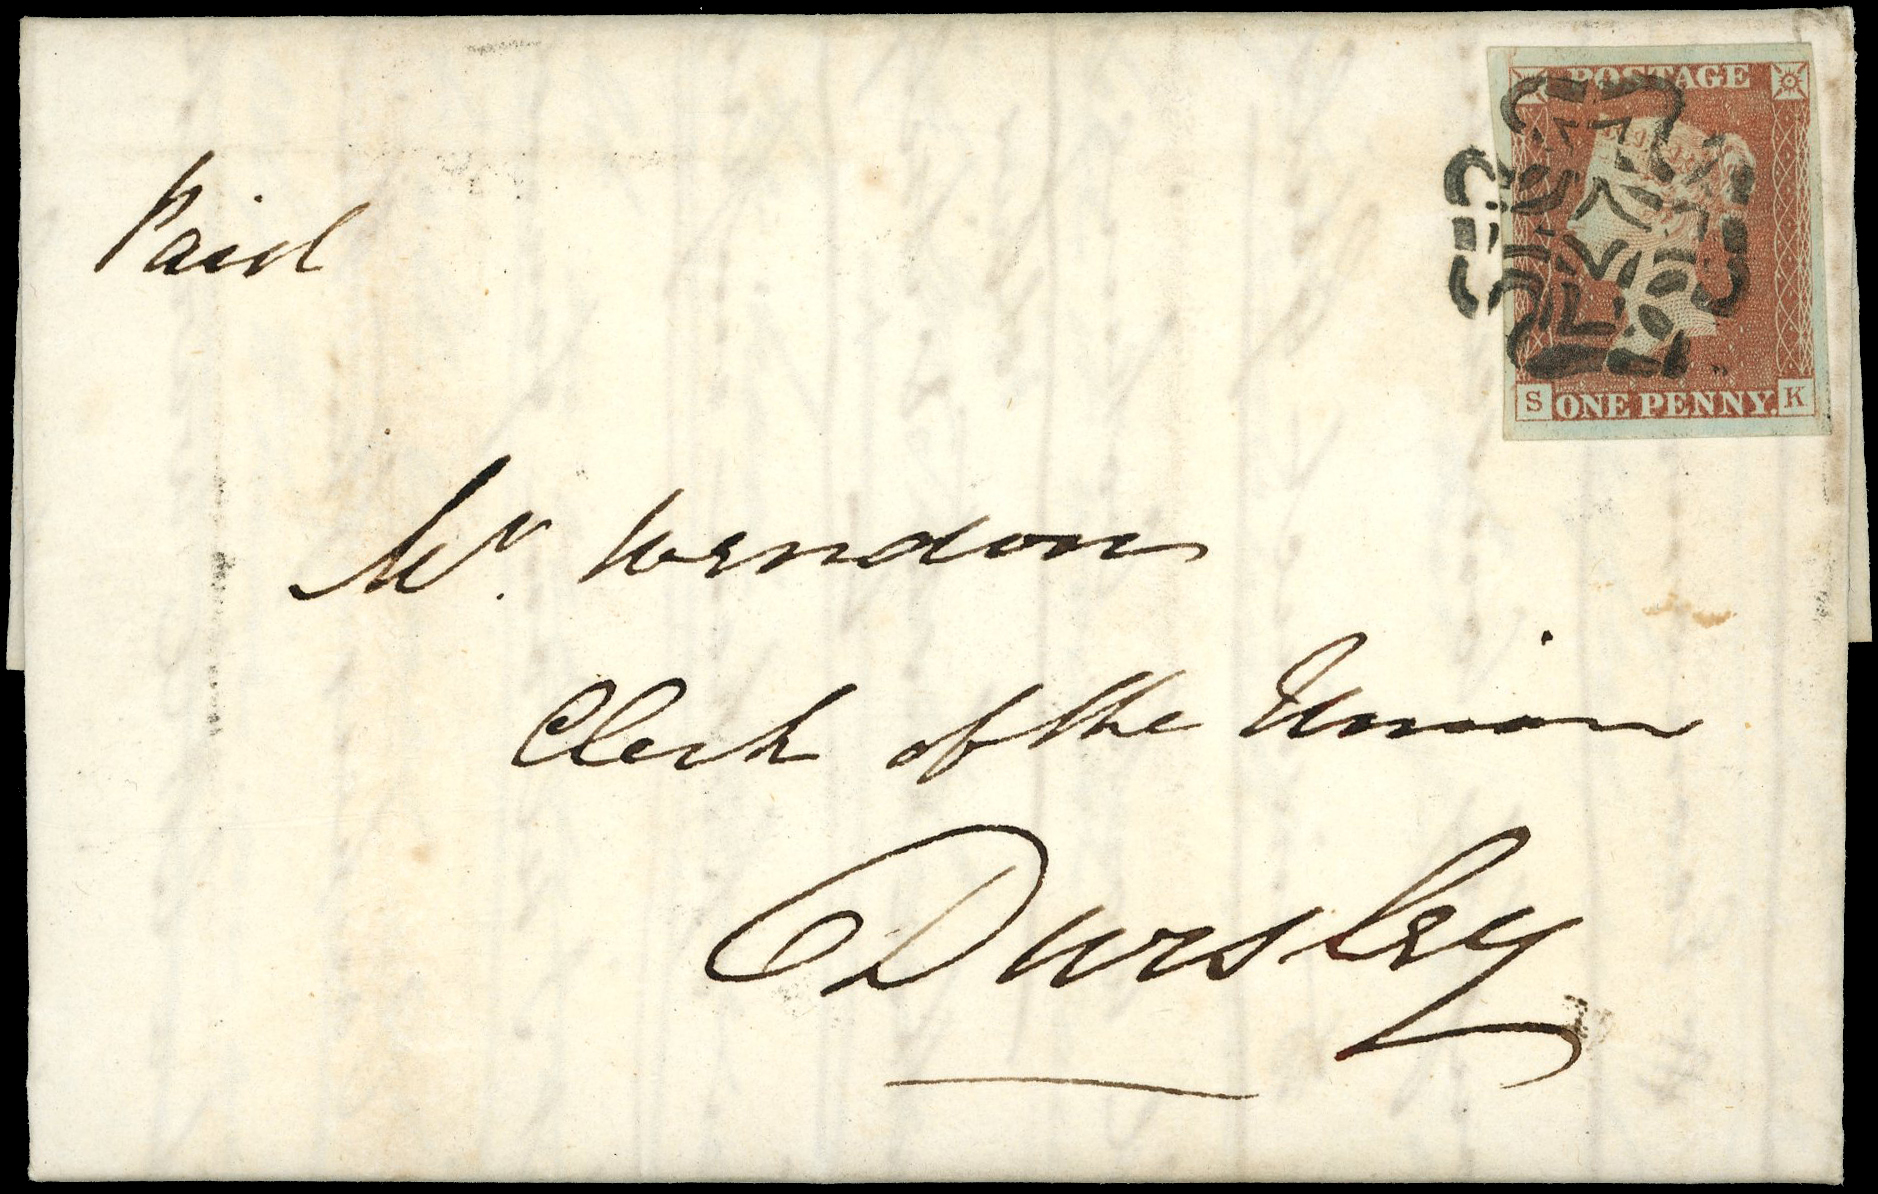 POSTAGE
Paid
S ONE PENNY. K
Mr.
Clerk of the Union
Dursley